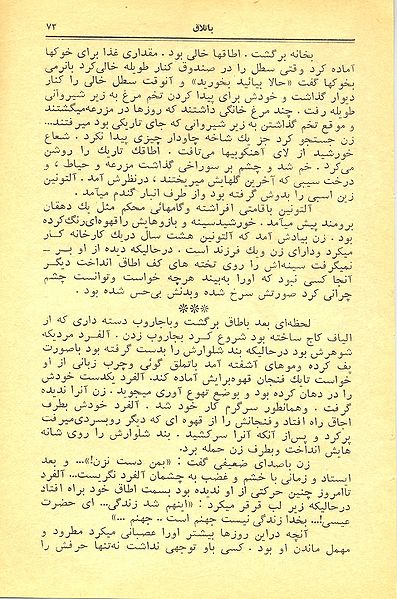 باتلاق ۷۳
بخانه برگشت . اطاقها خالی بود . مقداری غذا برای خوکها
آماده کرد وقتی سطل را در صندوق کنار طویله خالی‌کرد بانرمی
بخوکها گفت «حالا بیائید بخورید» و آنوقت سطل خالی را کنار
دیوار گذاشت و خودش برای پیدا کردن تخم مرغ به زیر شیروانی
طویله رفت . چند مرغ خانگی داشتند که روزها در مزرعه‌میگشتند
و موقع تخم گذاشتن به زیر شیروانی که جای تاریکی بود میرفتند...
زن جستجو کرد جز یك شاخه جاودار چیزی پیدا نکرد . شعاع
خورشید از لای آهنکوبیها می‌تافت . اطاقك تاریك را روشن
می‌کرد . خم شد و چشم بر سوراخی گذاشت مزرعه و حیاط ، و
درخت سیبی که آخرین گلهایش میریختند ، درنظرش آمد . آلتونین
زین اسبی را بدوش گرفته بود واز طرف انبار گندم میآمد .
آلتونین باقامتی افراشته وگامهائی محکم مثل یك دهقان
برومند پیش میآمد . خورشیدسینه و بازوهایش راقهوه‌ای‌رنگ‌کرده
بود . زن بیادش آمد که آلتونین هشت سال دریك کارخانه کـار
میکرد ودارای زن ویك فرزند است . درحالیکه دیده از او بـر ـ
نمیگرفت سینه‌اش را روی تخته های کف اطاق انداخت دیگـر
آنجا کسی نبرد که اورا به‌بیند هرچه خواست وتوانست چشم
چرانی کرد صورتش سرخ شده وبدنش بی‌حس شده بود .
***
لحظه‌ای بعد باطاق برگشت وباجاروب دسته داری که از
الیاف کاج ساخته بود شروع کـرد بجاروب زدن . آلفـرد مردیکه
شوهرش بود درحالیکه بند شلوارش را بدست گرفته بود باصورت
پف کرده وموهای آشفته آمد باتملق گوئی وچرب زبانی از او
خواست تایك فنجان قهوه‌برایش آماده کند. آلفرد یکدست خودش
را در دهان کرده بود و بوضع تهوع آوری میجوید . زن آنرا ندیده
گرفت . وهمانطور سرگرم کار خود شد . آلفرد خودش بطرف
اجاق راه افتاد وفنجانش را از قهوه ای که دیگر روبسردی‌میرفت
پرکرد و پس‌از آنکه آنرا سرکشید . بند شلوارش را روی شانه
هایش انداخت وبطرف زن حمله برد.
زن باصدای ضعیفی گفت : «بمن دست نزن!»... و بعد
ایستاد و زمانی با خشم و غضب به چشمان آلفرد نگریست... آلفرد
تاامروز چنین حرکتی از او ندیده بود بسمت اطاق خود براه افتاد
درحالیکه زیر لب قرقر میکرد : «اینهم شد زندگی... ای حضرت
عیسی!... بخدا زندگی نیست جهنم است .. جهنم ...»
آنچه دراین روزها بیشتر اورا عصبانی میکرد مطرود و
مهمل ماندن او بود . کسی باو توجهی نداشت نه‌تنها حرفش را